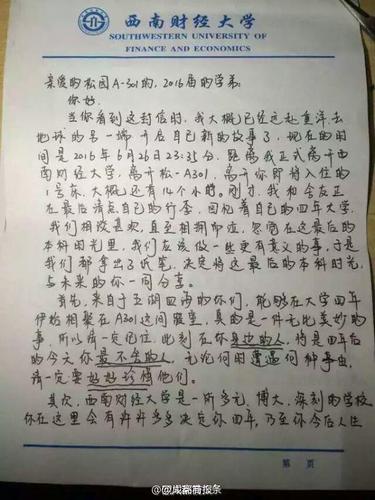 西南财经大学
SOUTHWESTERN UNIVERSITY OF
FINANCE AND ECONOMICS
亲爱的松园A-301的,2016届的学弟:
你好.
当你看到这封信时,我大概已经远赴重洋,去
地球的另一端开启自己新的故事了,现在的时
间是2016年6月26日23:35分,距离我正式离开西
南财经大学,离开松-A301,离开你即将入住的
1号床,大概还有14个小时.刚才,我和舍友正
在最后清点自己的行李,回忆着自己的四年大学,
我们相视是哀,直至相拥而泣,忽觉在这最后的
本科时光里,我们应该做一些更有意义的事,于是
我们都拿出了纸笔,决定将这最后的本科时光,
与未来的你一同分享.
首先,来自于五湖四海的你们,能够在大学四年
伊始相聚在A301这间寝室,真的是一件无比美妙的
事,所以请一定记住,此刻在你身边的人,将是四年后
的今天你最不舍的人,无论何时遭遇何种事由,
请一定要好好珍惜他们.
其次,西南财经大学是一所多元、博大、深刻的学校,
你在这里会有许许多多决定你四年,乃至你今后人生
第 页
@成都商报条